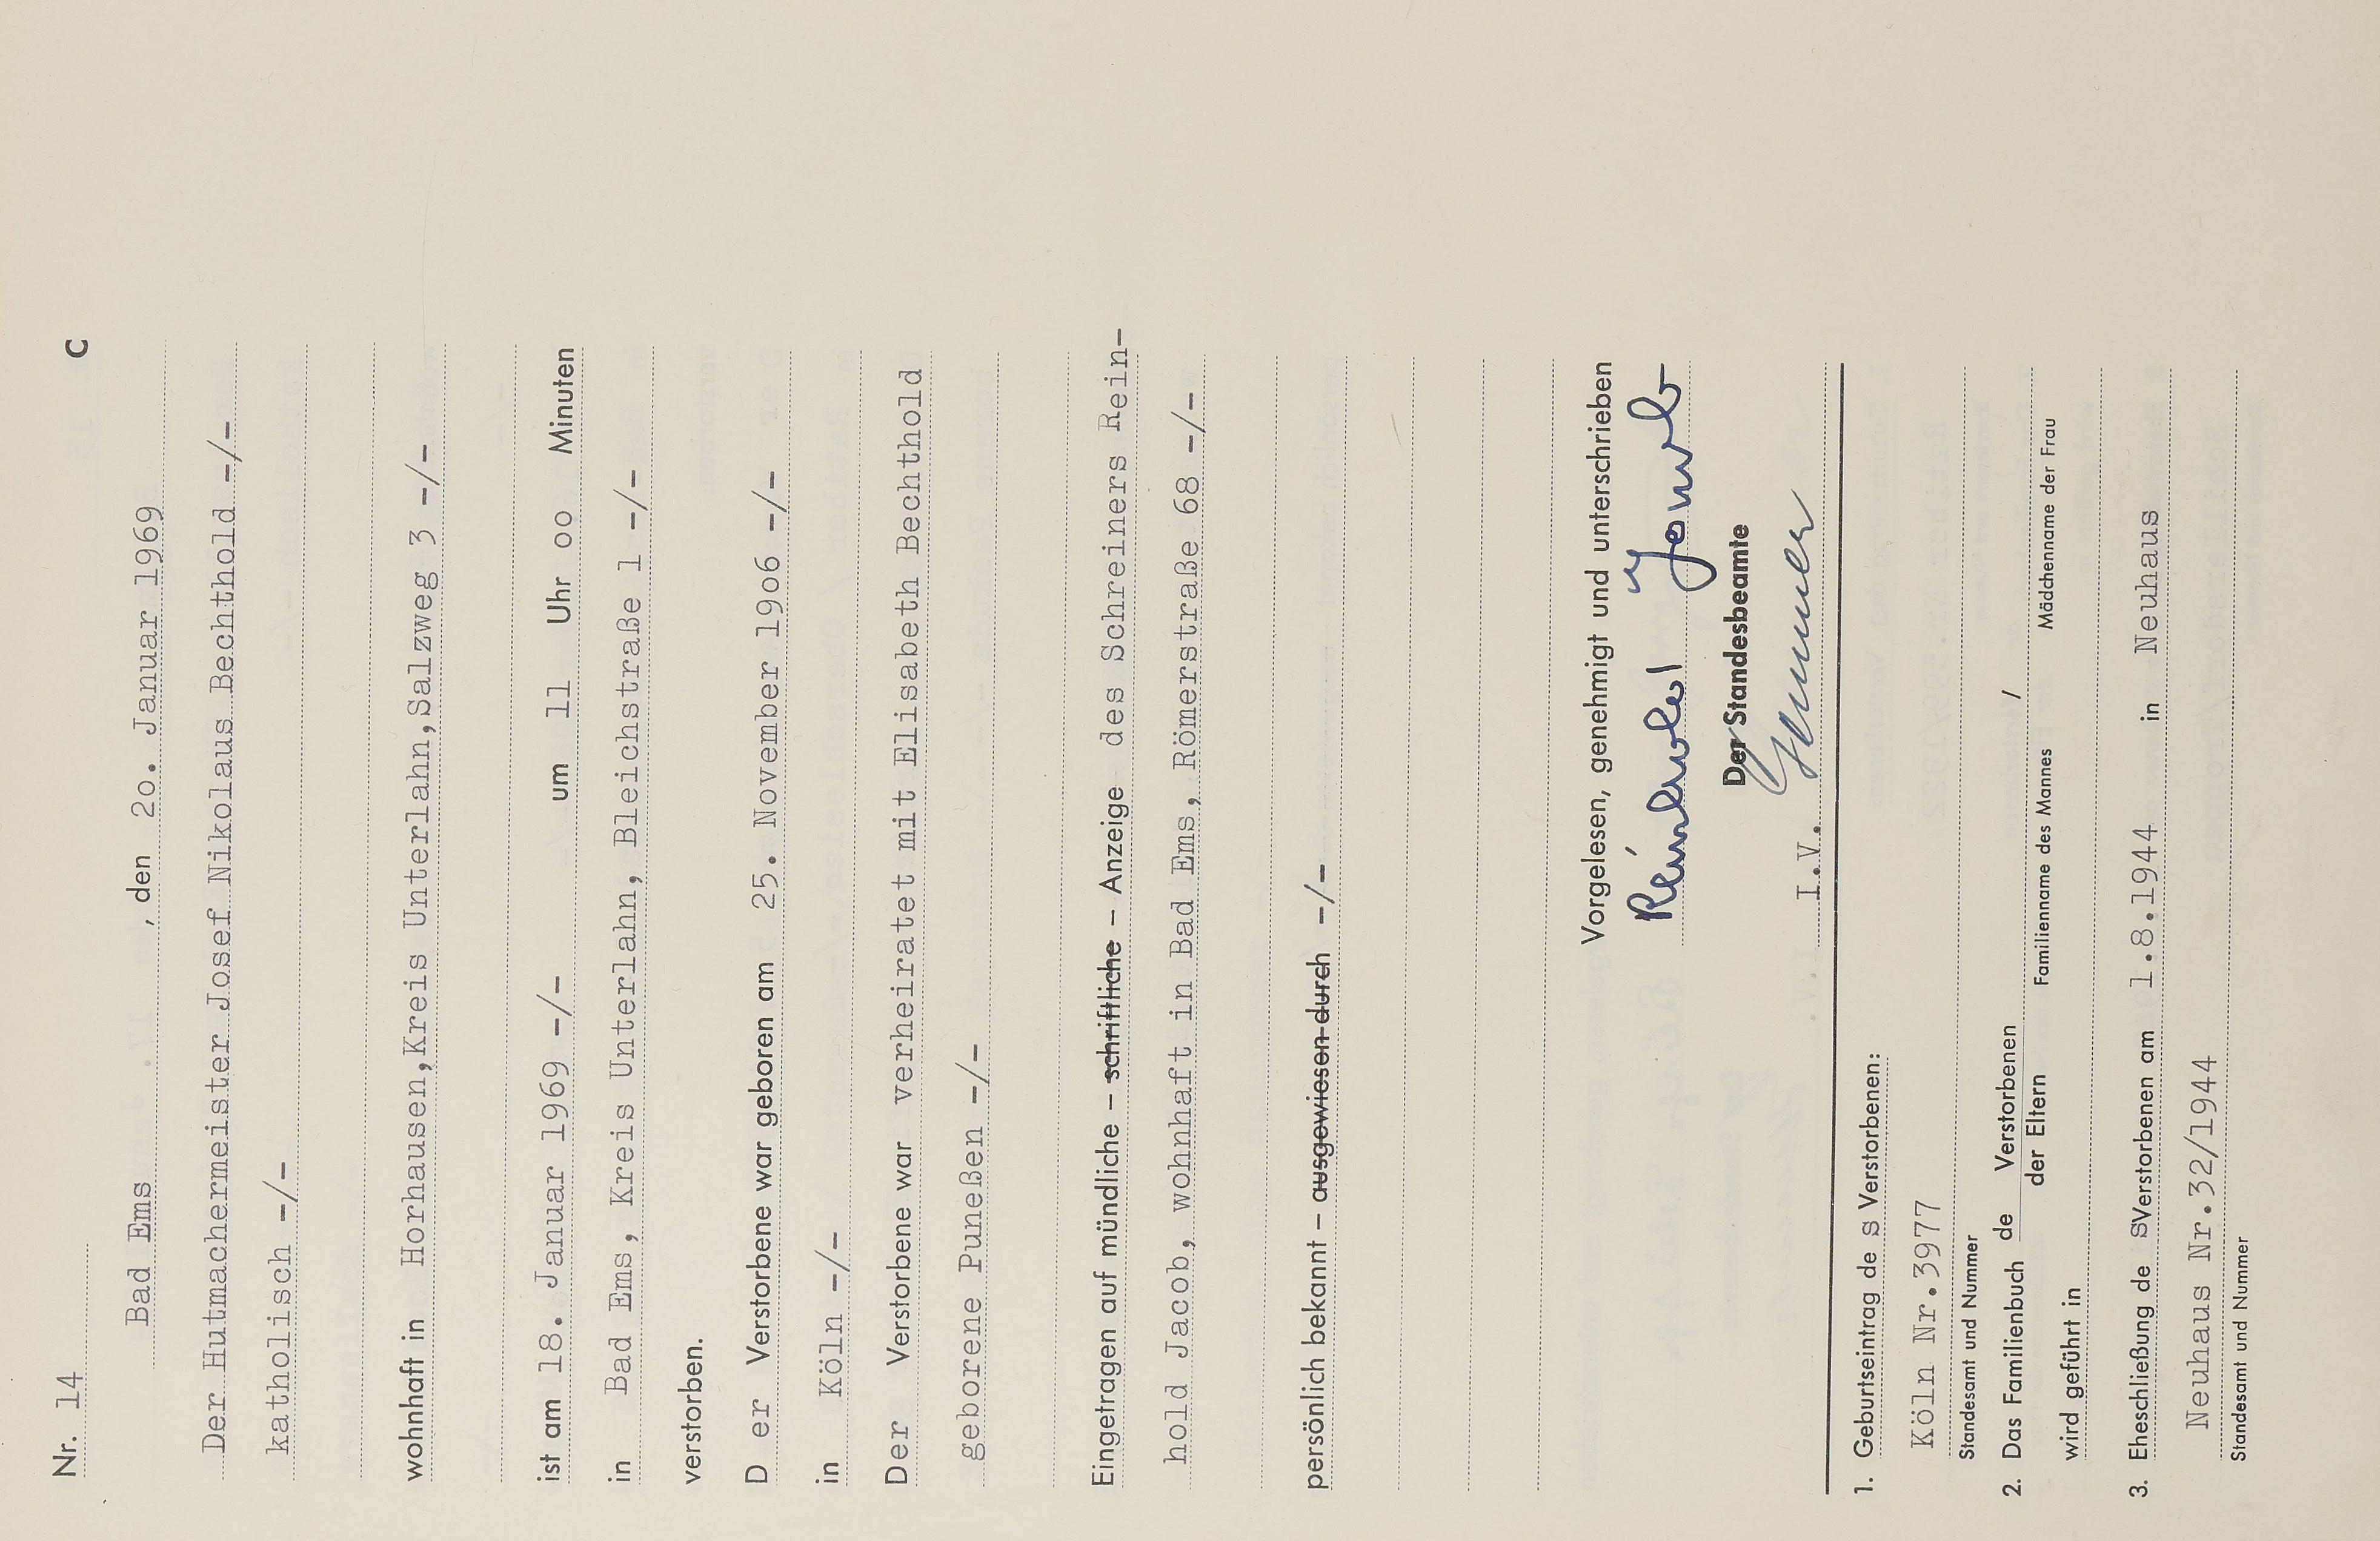 Nr. 14 C
Bad Ems , den 2o. Januar 1969
Der Hutmachermeister Josef Nikolaus Bechthold -/-
katholisch -/-
wohnhaft in Horhausen,Kreis Unterlahn,Salzweg 3 -/-
ist am 18. Januar 1969 -/- um 11 Uhr oo Minuten
in Bad Ems, Kreis Unterlahn, Bleichstraße 1 -/-
verstorben.
D er Verstorbene war geboren am 25. November 19o6 -/-
in Köln -/-
Der Verstorbene war verheiratet mit Elisabeth Bechthold
geborene Puneßen -/-
Eingetragen auf mündliche – schriftliche – Anzeige des Schreiners Rein-
hold Jacob, wohnhaft in Bad Ems, Römerstraße 68 -/-
persönlich bekannt – ausgewiesen durch -/-
Vorgelesen, genehmigt und unterschrieben
Reinhold Jacob
Der Standesbeamte
I.V.
1. Geburtseintrag de s Verstorbenen:
Köln Nr.3977
Standesamt und Nummer
2. Das Familienbuch de Verstorbenen /
der Eltern Familienname des Mannes Mädchenname der Frau
wird geführt in
3. Eheschließung de s Verstorbenen am 1.8.1944 in Neuhaus
Neuhaus Nr.32/1944
Standesamt und Nummer